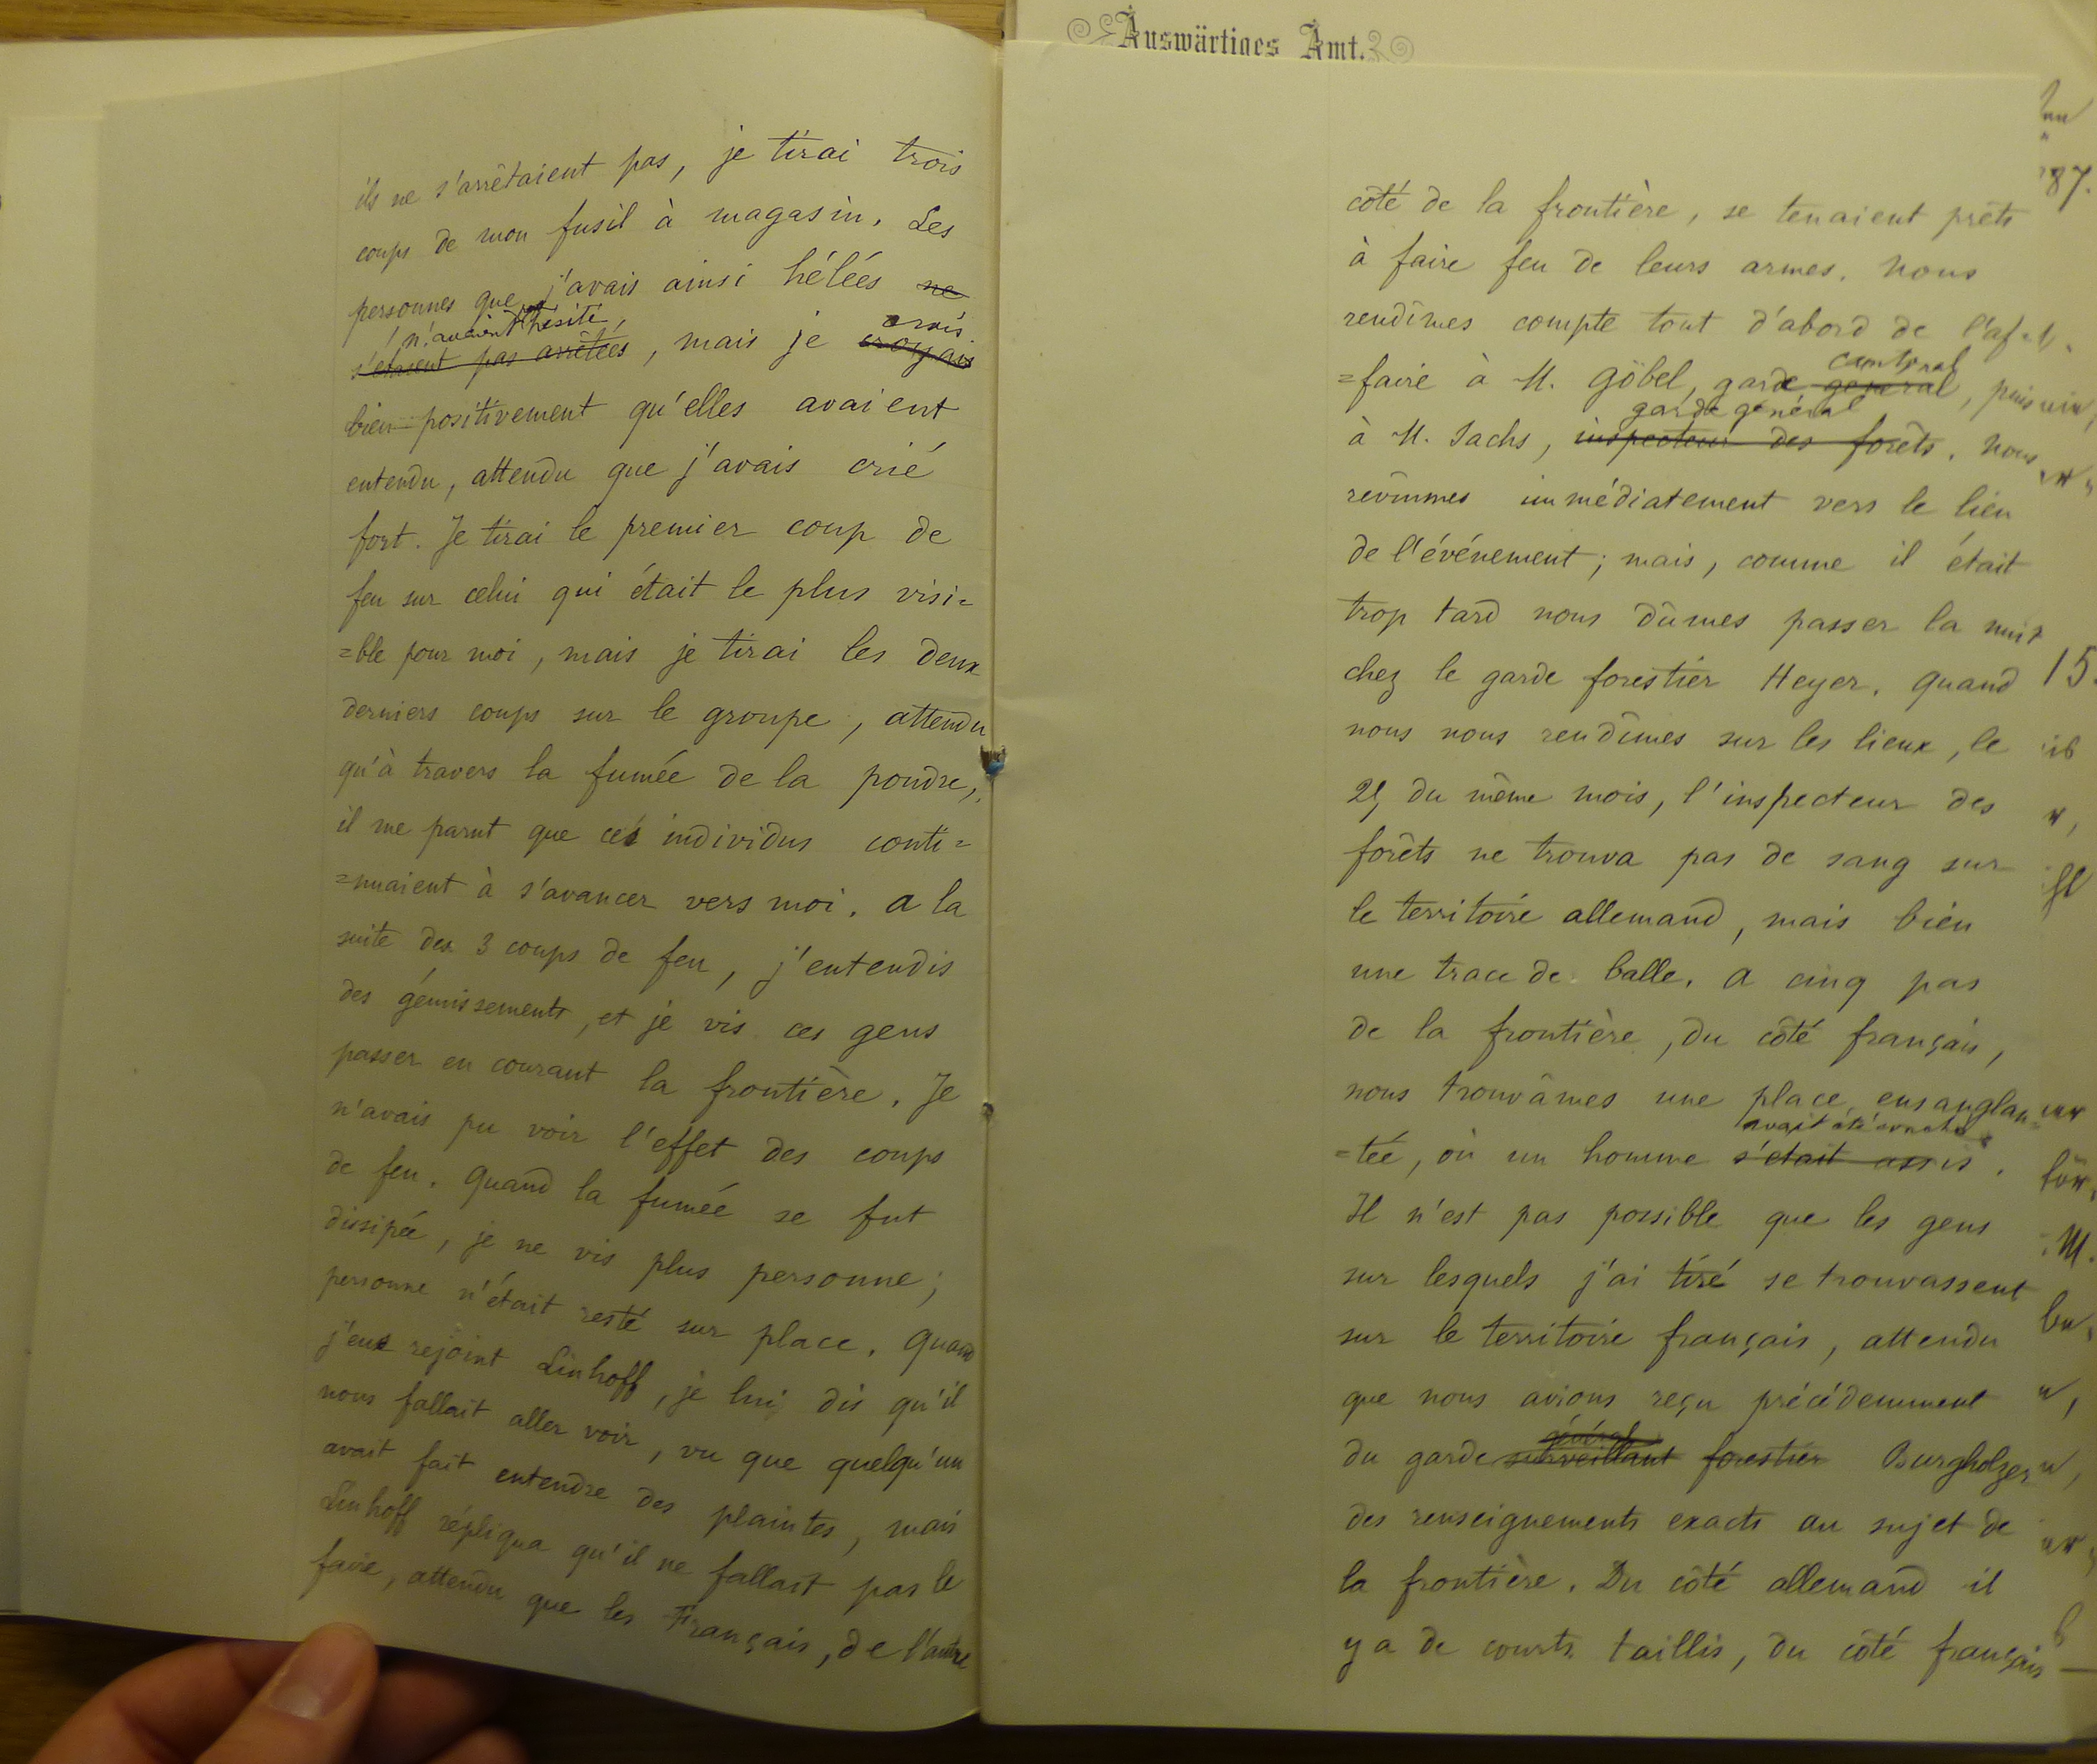 ils ne s'arrêtaient pas, je tirai trois
coups de mon fusil à magasin. Les
personnes que j'avais ainsi hélées ne
n'avaient hésité, crois
s'étaient pas arrêtées, mais je croyais
bien positivement qu'elles avaient
entendu, attendu que j'avais crié
fort. Je tirai le premier coup de
feu sur celui qui était le plus visi=
=ble pour moi, mais je tirai les deux
derniers coups sur le groupe, attendu
qu'à travers la fumée de la poudre,
il me parut que ces individus conti=
=nuaient à s'avancer vers moi. A la
suite des 3 coups de feu, j'entendis
des gémissements, et je vis ces gens
passer en courant la frontière. Je
n'avais pu voir l'effet des coups
de feu. Quand la fumée se fut
dissipée, je ne vis plus personne;
personne n'était resté sur place. Quand
j'eus rejoint Linhoff, je lui dis qu'il
nous fallait aller voir, vu que quelqu'un
avait fait entendre des plaintes, mais
Linhoff répliqua qu'il ne fallait pas le
faire, attendu que les Français, de l'autre
Auswärtiges Amt.
côté de la frontière, se tenaient prêts
à faire feu de leurs armes. Nous
rendîmes compte tout d'abord de l'af=
cantonal
=faire à M. Göbel, garde général, puis
garde général
à M. Sachs, inspecteur des forêts. Nous
revînmes immédiatement vers le lieu
de l'événement; mais, comme il était
trop tard nous dûmes passer la nuit
chez le garde forestier Heyer. Quand
nous nous rendîmes sur les lieux, le
25 du même mois, l'inspecteur des
forêts ne trouva pas de sang sur
le territoire allemand, mais bien
une trace de balle. A cinq pas
de la frontière, du côté français,
nous trouvâmes une place ensanglan=
avait été
=tée, où un homme s'était assis.
Il n'est pas possible que les gens
sur lesquels j'ai tiré se trouvassent
sur le territoire français, attendu
que nous avions reçu précédemment
général
du garde surveillant forestier Burgholzer
des renseignements exacts au sujet de
la frontière. Du côté allemand il
y a de courts taillis, du côté français
87.
15.